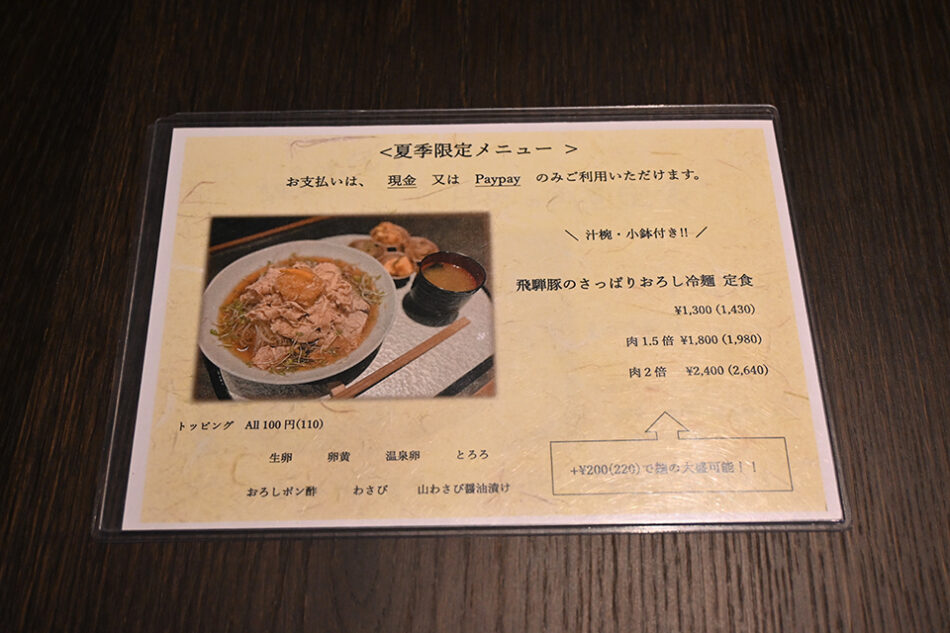 <夏季限定メニュー >
お支払いは、 現金 又は Paypay のみご利用いただけます。
＼ 汁椀・小鉢付き!! ／
飛騨豚のさっぱりおろし冷麺 定食
¥1,300 (1,430)
肉 1.5 倍 ¥1,800 (1,980)
肉 2 倍 ¥2,400 (2,640)
+¥200(220)で麺の大盛可能！！
トッピング All 100 円(110)
生卵 卵黄 温泉卵 とろろ
おろしポン酢 わさび 山わさび醤油漬け